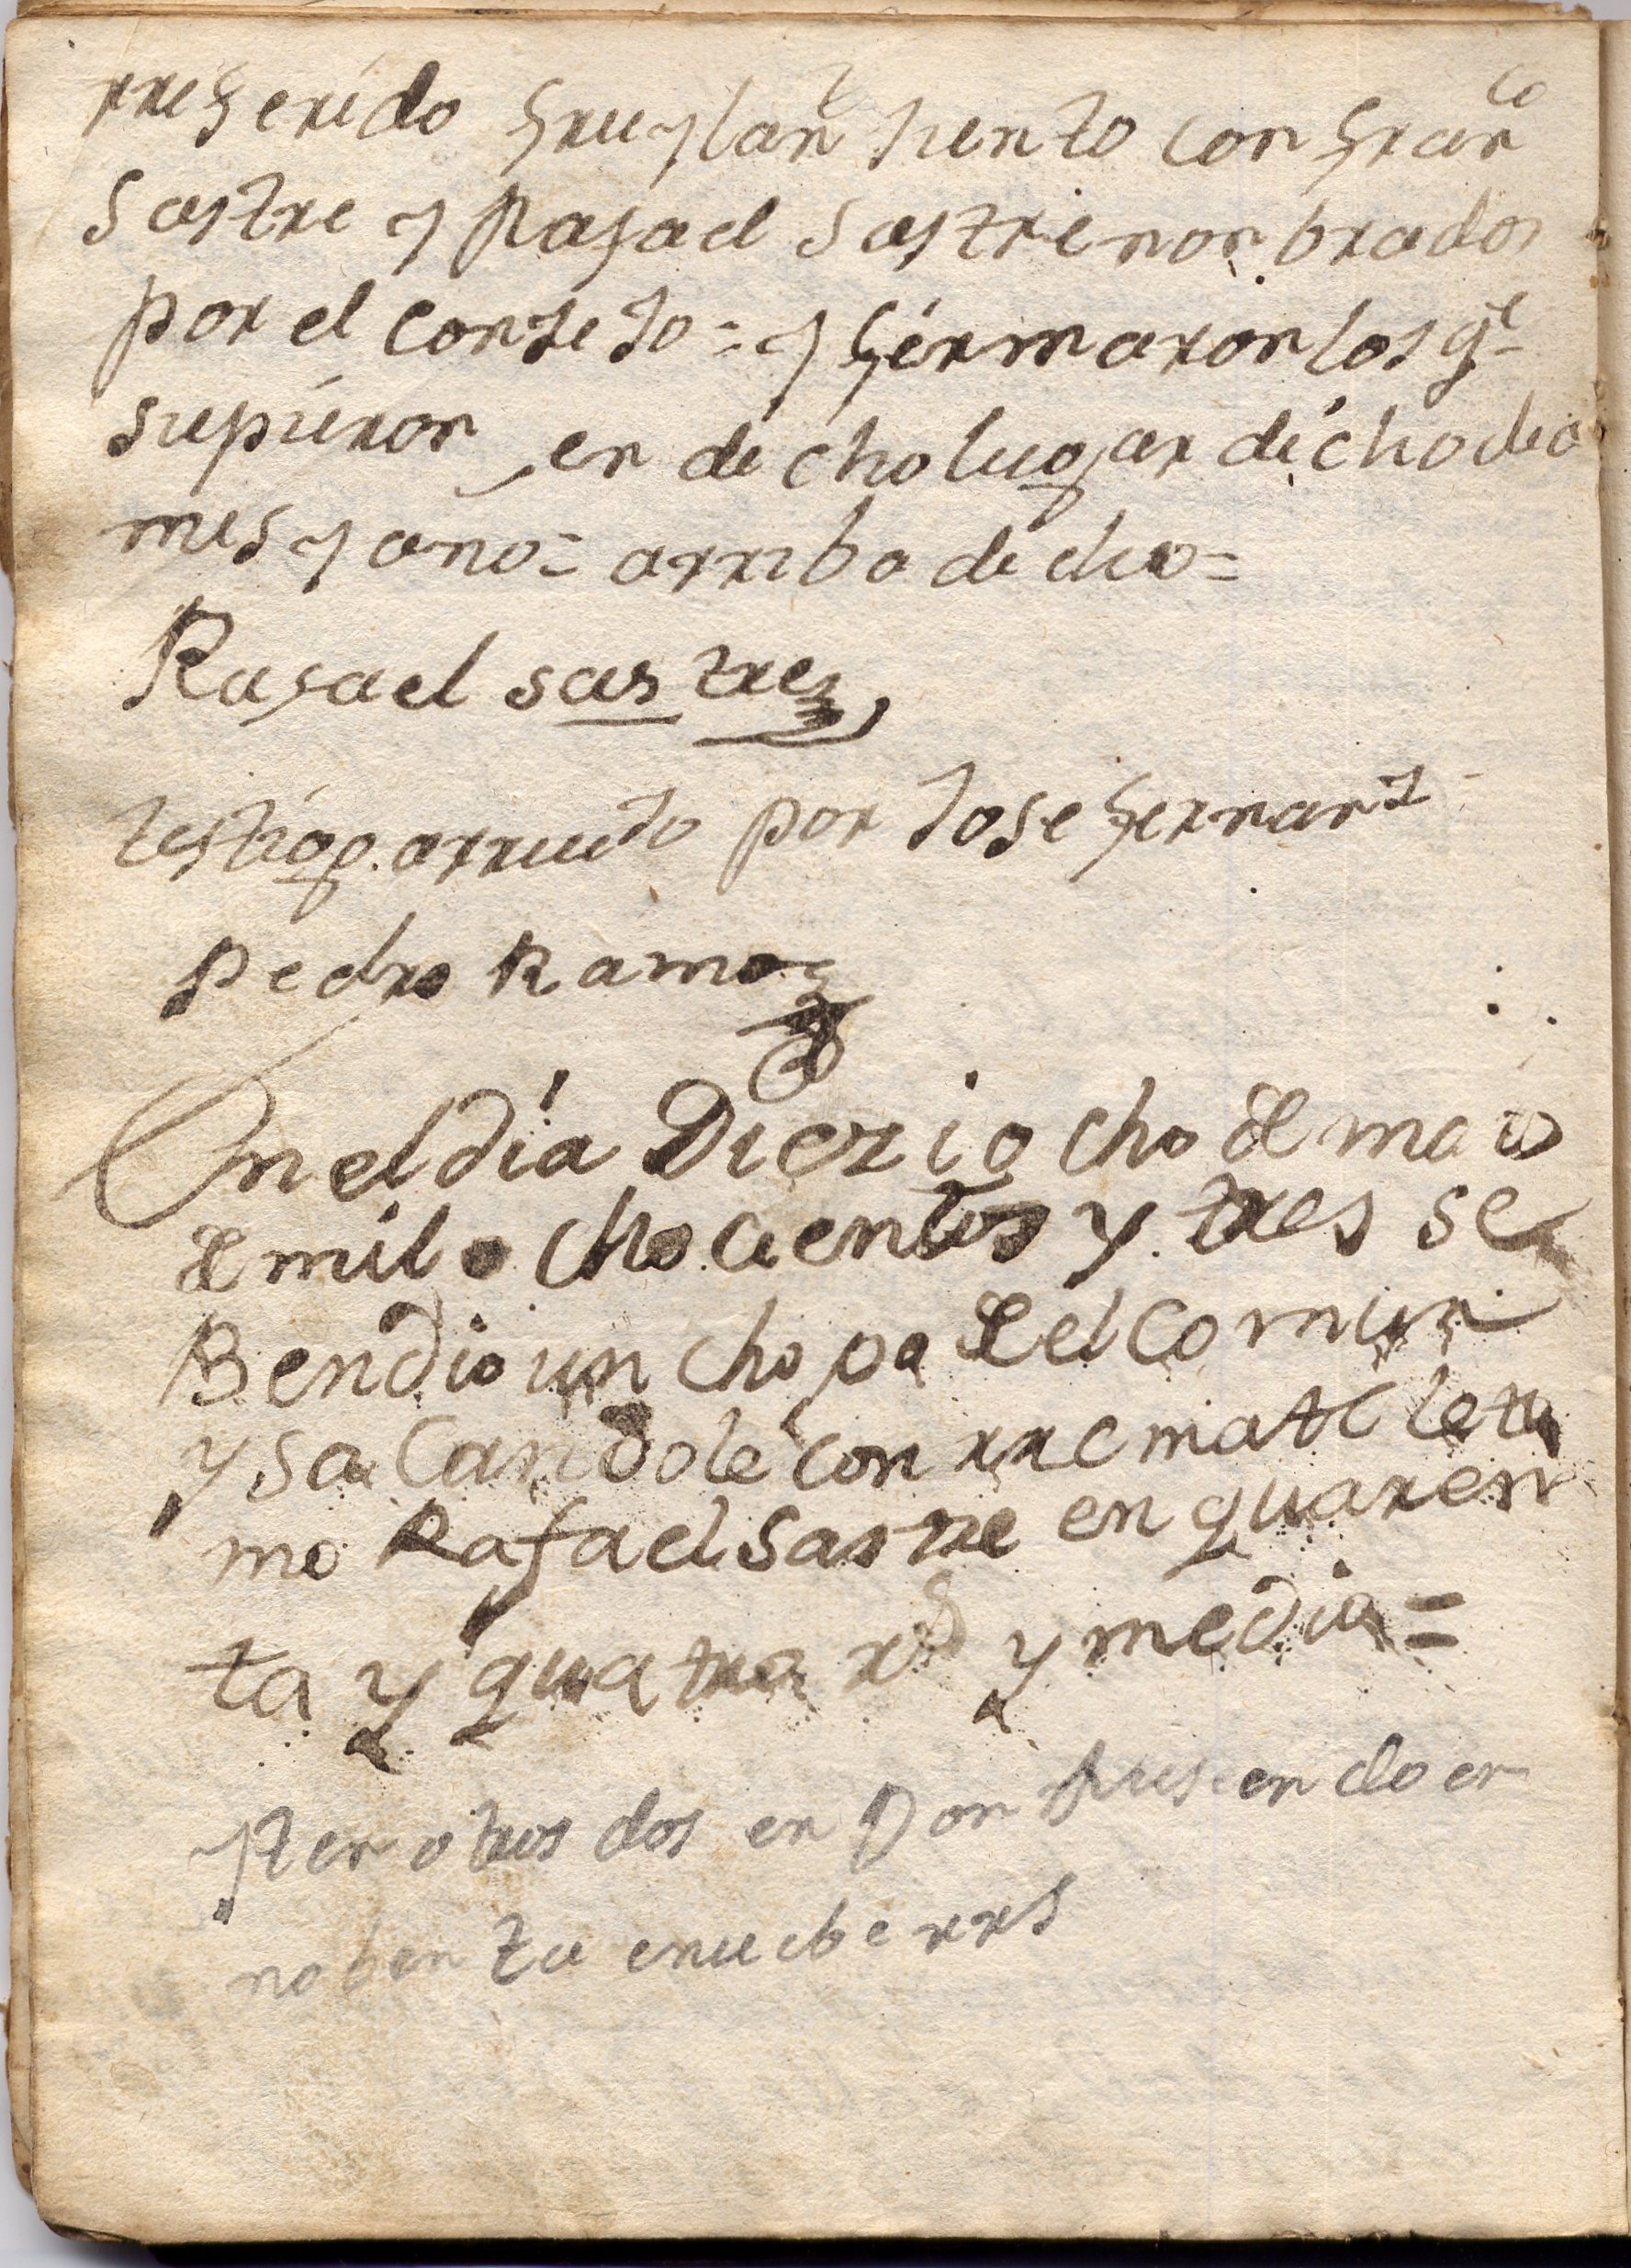 rreferido fruylan junto con franco
Sastre y Rafael Sastre nonbrados
por el Consejo = y firmaron los qe
supieron en dicho lugar dicho dia
mes y ano = arriba dicho =
Rafael sastre
testigo arruego por Jose fernand
Pedro Ramos
En el dia Diez i ocho de maio
de mil ochocientos y tres se
Bendio un chopo del comun
y sacandole con rremate le to
mo Rafael Sastre en quaren
ta y quatro rs y media =
yten otros dos en Don Rusendo en
nobenta enuebe rrs